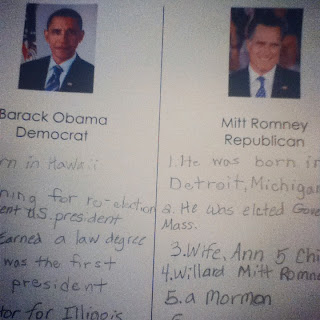 Barack Obama
Democrat
rn in Hawaii
ning for re-election
ent U.S. president
Earned a law degree
was the first
president
tor for Illinois
Mitt Romney
Republican
1. He was born in
Detroit, Michigan
2. He was eleted Gove
Mass.
3. Wife, Ann 5 Chi
4. Willard Mitt Romne
5. a Mormon